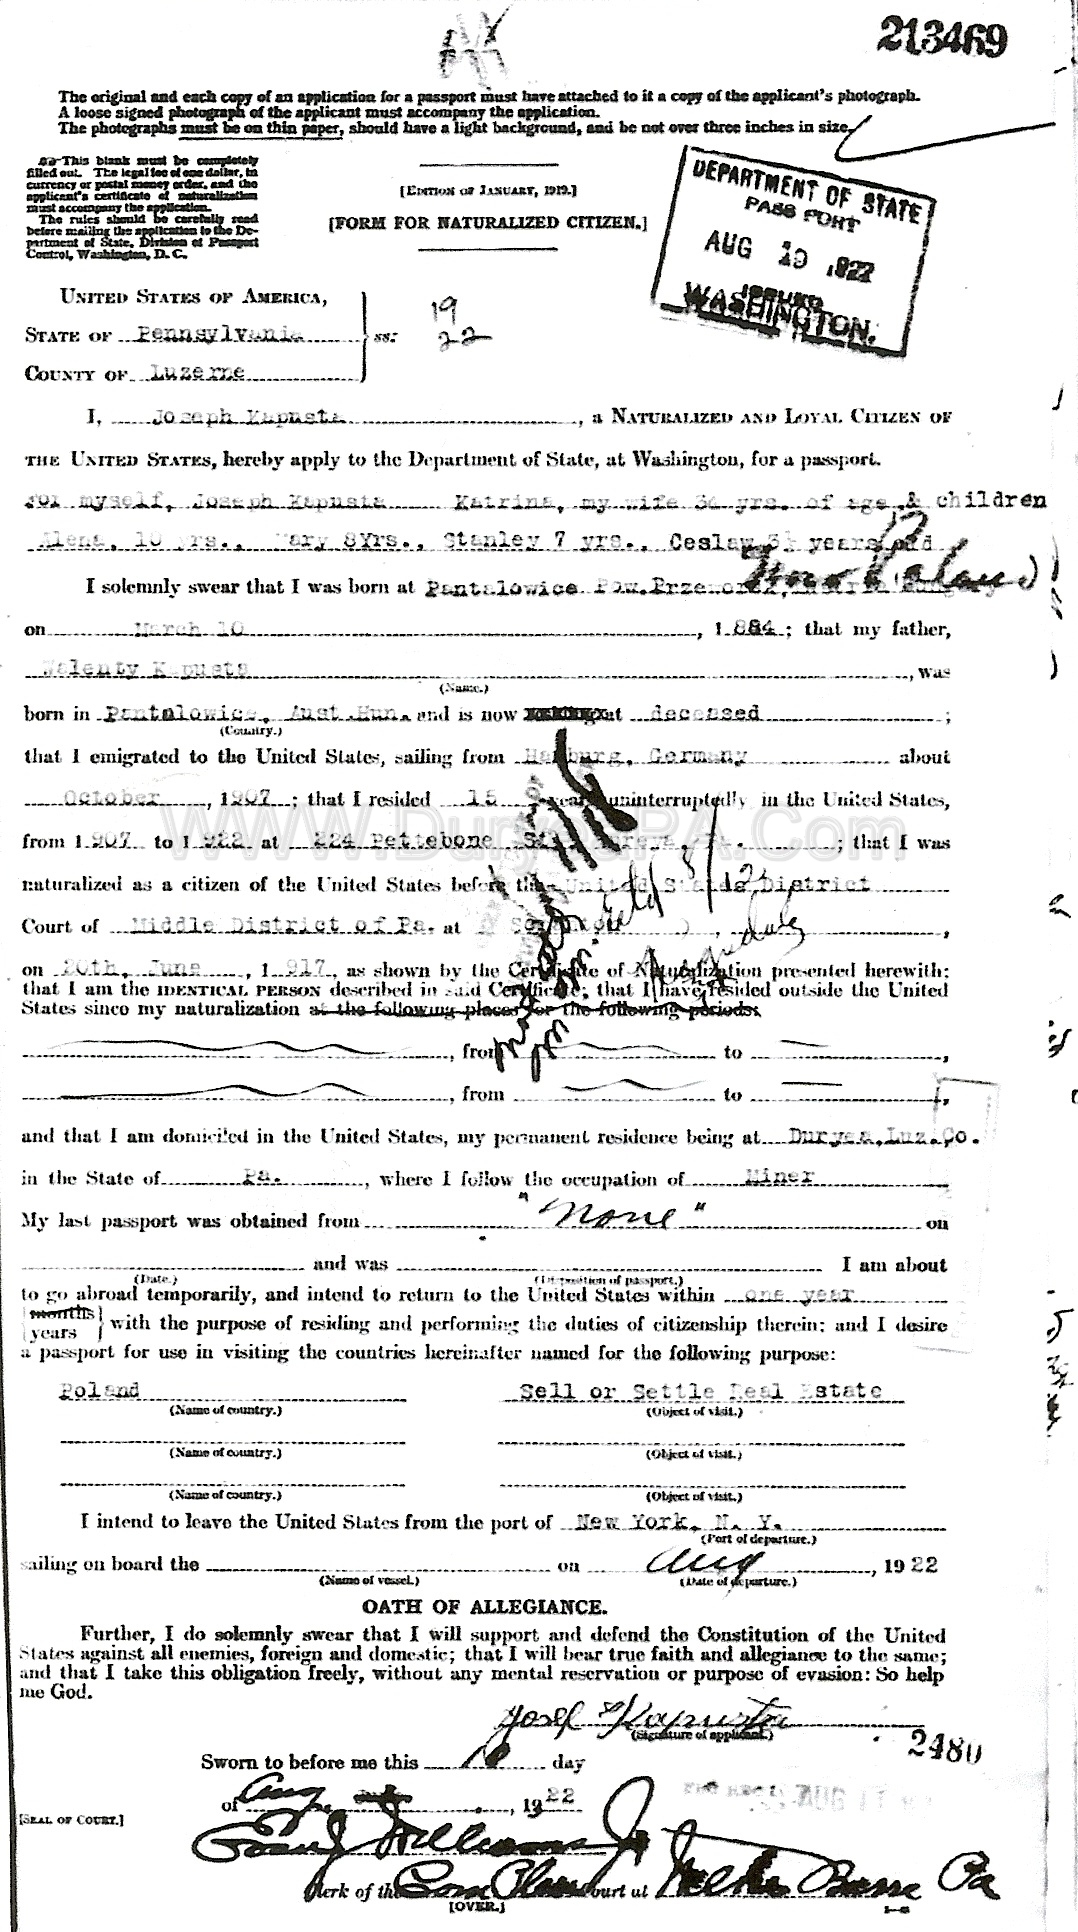 213469
The original and each copy of an application for a passport must have attached to it a copy of the applicant's photograph.
A loose signed photograph of the applicant must accompany the application.
The photographs must be on thin paper, should have a light background, and be not over three inches in size.
This blank must be completely
filled out. The legal fee of one dollar, in
currency or postal money order, and the
applicant's certificate of naturalization
must accompany the application.
The rules should be carefully read
before mailing the application to the De-
partment of State, Division of Passport
Control, Washington, D. C.
[EDITION OF JANUARY, 1919.]
[FORM FOR NATURALIZED CITIZEN.]
DEPARTMENT OF STATE
PASSPORT
AUG 19 1922
ISSUED
WASHINGTON.
UNITED STATES OF AMERICA,
STATE OF Pennsylvania ss:
COUNTY OF Luzerne
19
22
I, Joseph Kapusta, a NATURALIZED AND LOYAL CITIZEN OF
THE UNITED STATES, hereby apply to the Department of State, at Washington, for a passport.
For myself, Joseph Kapusta Katrina, my wife 34 yrs. of age & children
Alena, 10 yrs., Mary 8Yrs., Stanley 7 yrs., Ceslaw 3½ years
I solemnly swear that I was born at Pantalowice Pow. Przeworsk, Poland
on March 10, 1884; that my father,
Walenty Kapusta, was
(Name.)
born in Pantalowice, Aust.Hun. and is now at deceased;
(Country.)
that I emigrated to the United States, sailing from Hamburg, Germany about
October, 1907; that I resided 15 years uninterruptedly in the United States,
from 1907 to 1922 at 224 Pettebone St. Duryea, Pa.; that I was
WWW.DuryeaPA.Com
naturalized as a citizen of the United States before the United States District
Court of Middle District of Pa. at Scranton,
on 20th, June, 1917, as shown by the Certificate of Naturalization presented herewith;
that I am the IDENTICAL PERSON described in said Certificate; that I have resided outside the United
States since my naturalization at the following places for the following periods:
, from to ,
, from to ,
and that I am domiciled in the United States, my permanent residence being at Duryea, Luz. Co.
in the State of Pa., where I follow the occupation of Miner
My last passport was obtained from "none" on
and was I am about
(Date.) (Disposition of passport.)
to go abroad temporarily, and intend to return to the United States within one year
months
years with the purpose of residing and performing the duties of citizenship therein; and I desire
a passport for use in visiting the countries hereinafter named for the following purpose:
Poland Sell or Settle Real Estate
(Name of country.) (Object of visit.)
(Name of country.) (Object of visit.)
(Name of country.) (Object of visit.)
I intend to leave the United States from the port of New York, N. Y.
(Port of departure.)
sailing on board the on Aug, 1922
(Name of vessel.) (Date of departure.)
OATH OF ALLEGIANCE.
Further, I do solemnly swear that I will support and defend the Constitution of the United
States against all enemies, foreign and domestic; that I will bear true faith and allegiance to the same;
and that I take this obligation freely, without any mental reservation or purpose of evasion: So help
me God.
Josef Kapusta
(Signature of applicant.)
2480
Sworn to before me this day
of Aug, 1922
[SEAL OF COURT.]
Williams Jr
Clerk of the Com Pleas Court at Wilkes Barre Pa
[OVER.]